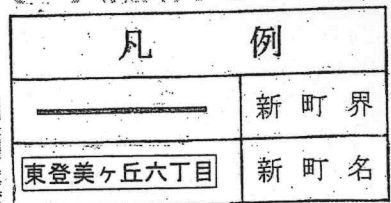 凡例
新町界
東登美ヶ丘六丁目 新町名